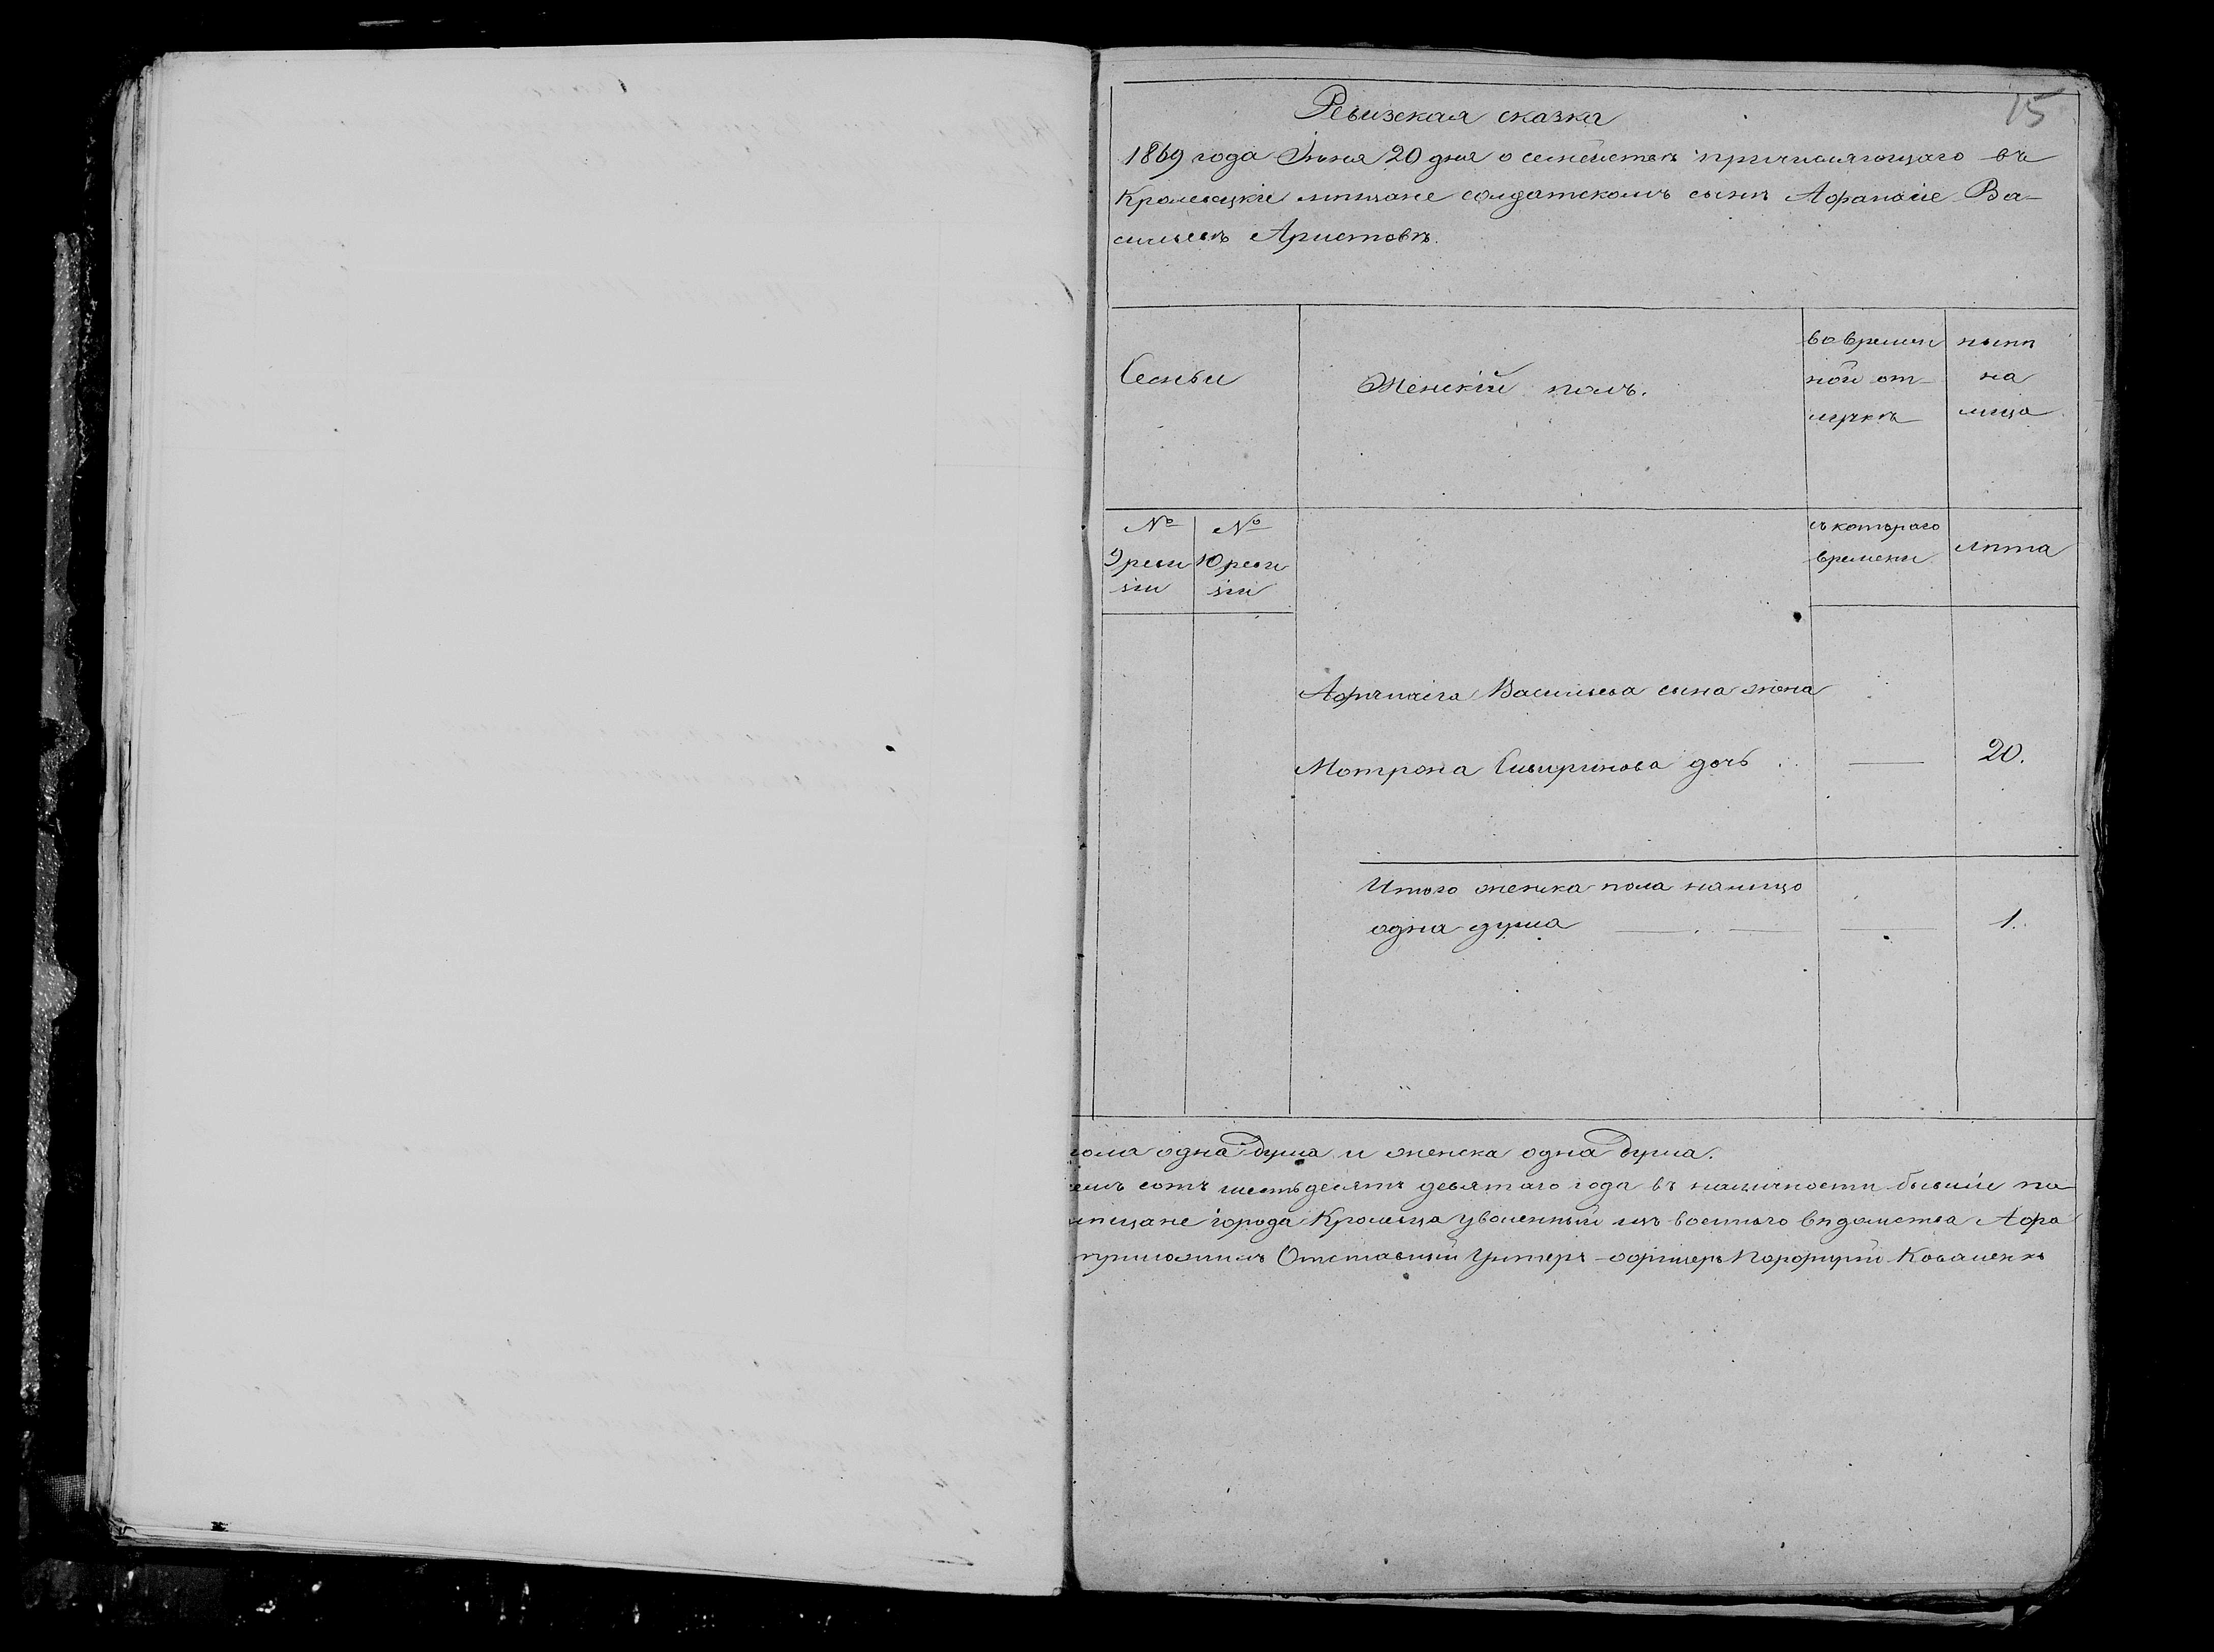 15
Ревизская сказка
1869 года Іюня 20 дня о семействѣ причисляющаго въ
Кролевецкіе мѣщане солдатскомъ сынѣ Афанасіе Ва-
сильевѣ Аристовѣ.
Семьи
Женскій полъ.
во времен
ной от-
лучкѣ
нынѣ
на
лицо
№
9 реви
зіи
№
10 реви
зіи
съ котораго
времени
лѣта
Афанасія Васильева сына жена
Мотрона Сивиринова дочь — 20.
Итого женска пола налицо
одна душа — — — 1.
пола одна душа и женска одна душа.
емъ сотъ шестьдесятъ девятаго года въ наличности бывшіе по
мѣщане города Кролевца уволенный изъ военнаго вѣдомства Афа
приложилъ Отставный Унтеръ-офицеръ Порфирій Коваленко